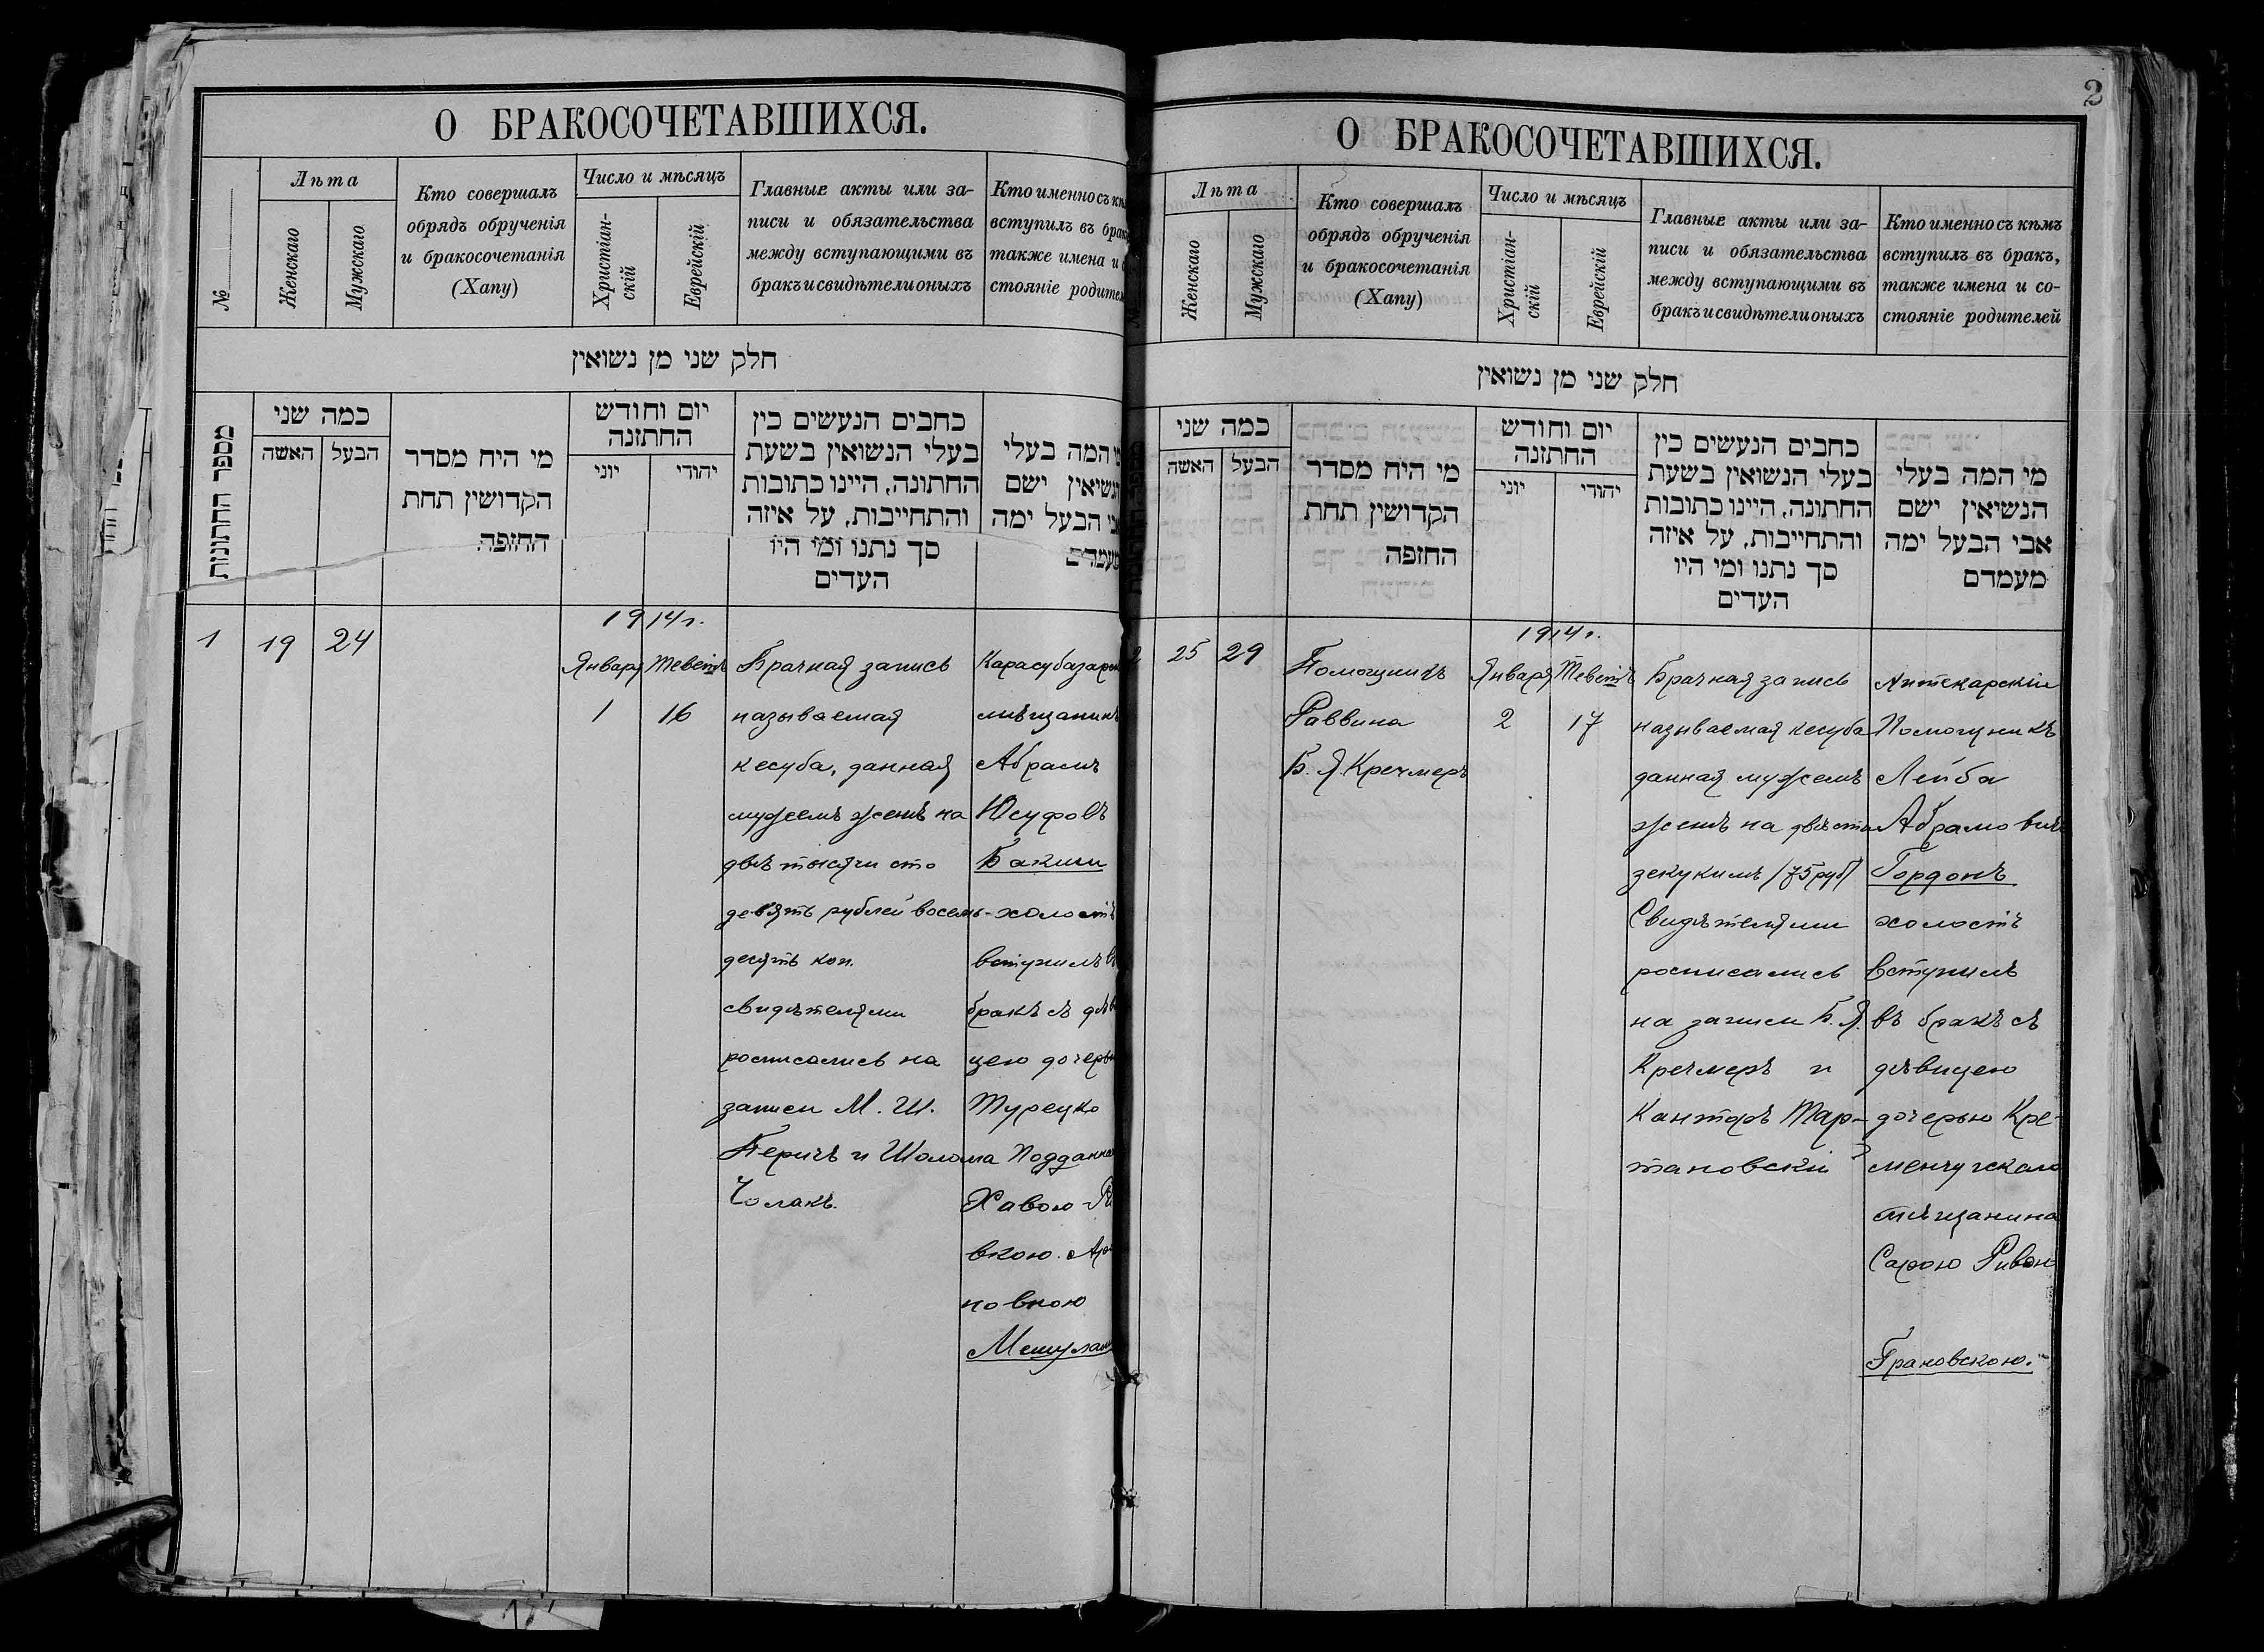 О БРАКОСОЧЕТАВШИХСЯ.
№
Лѣта
Женскаго
Мужскаго
Кто совершалъ
обрядъ обрученія
и бракосочетанія
(Хапу)
Число и мѣсяцъ
Христіан-
скій
Еврейскій
Главные акты или за-
писи и обязательства
между вступающими въ
бракъ и свидѣтели оныхъ
Кто именно съ
вступилъ въ
также имена и
стояніе
חלק שני מן נשואין
מספר החתונות
כמה שני
האשה
הבעל
מי היח מסדר
הקדושין תחת
החופה.
יום וחודש
החתזנה
יוני
יהודי
כחבים הנעשים כין
בעלי הנשואין בשעת
החתונה, היינו כתובות
והתחייבות, על איזה
סך נתנו ומי היו
העדים
המה בעלי
ישם
הבעל ימה
1
19
24
1914 г.
Января
Теветъ
1
16
Брачная запись
называемая
кесуба, данная
мужемъ женѣ на
двѣ тысячи сто
девять рублей восемь-
десять коп.
свидѣтелями
росписались на
записи М. Ш.
Перичъ и Шолома
Чолакъ.
мѣщанинъ
Абрамъ
Юсуфовъ
Бакши
холостъ
вступилъ
бракъ съ
цею
Турецко
Хавою
вкою.
новною
2
О БРАКОСОЧЕТАВШИХСЯ.
Лѣта
Женскаго
Мужскаго
Кто совершалъ
обрядъ обрученія
и бракосочетанія
(Хапу)
Число и мѣсяцъ
Христіан-
скій
Еврейскій
Главные акты или за-
писи и обязательства
между вступающими въ
бракъ и свидѣтели оныхъ
Кто именно съ кѣмъ
вступилъ въ бракъ,
также имена и со-
стояніе родителей
חלק שני מן נשואין
כמה שני
האשה
הבעל
מי היח מסדר
הקדושין תחת
החזפה
יום וחודש
החתזנה
יוני
יהודי
כחבים הנעשים כין
בעלי הנשואין בשעת
החתונה, היינו כתובות
והתחייבות, על איזה
סך נתנו ומי היו
העדים
מי המה בעלי
הנשיאין ישם
אבי הבעל ימה
מעמדם
2
25
29
Помощникъ
Раввина
Б. Я. Кречмеръ
1914 г.
Января
Теветъ
2
17
Брачная запись
называемая кесуба
данная мужемъ
женѣ на двѣсти
зекукимъ (75 руб)
Свидѣтелями
росписались
на записи Б. Я.
Кречмеръ и
Канторъ Тар-
тановскій
Аптекарскій
Помощникъ
Лейба
Абрамовичъ
Гордонъ
холостъ
вступилъ
въ бракъ съ
дѣвицею
дочерью Кре-
менчугскаго
мѣщанина
Сарою
Грановскою.